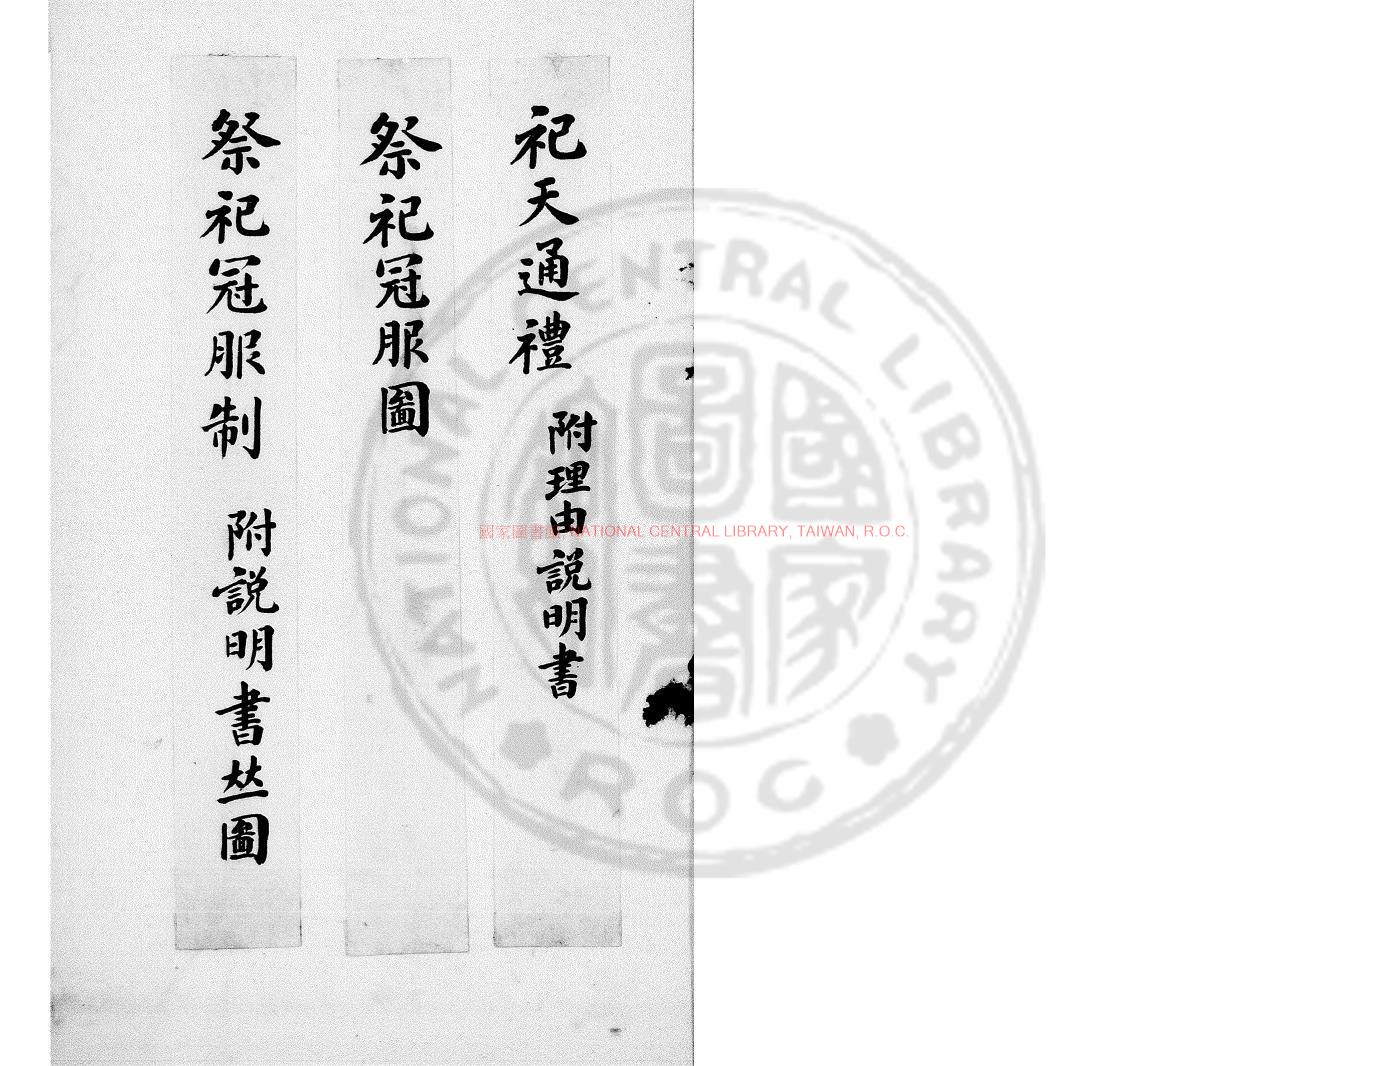 祀天通禮 附理由説明書
祭祀冠服圖
祭祀冠服制 附説明書竝圖
國家圖書館 NATIONAL CENTRAL LIBRARY, TAIWAN, R.O.C.
NATIONAL CENTRAL LIBRARY
ROC
國家圖書館